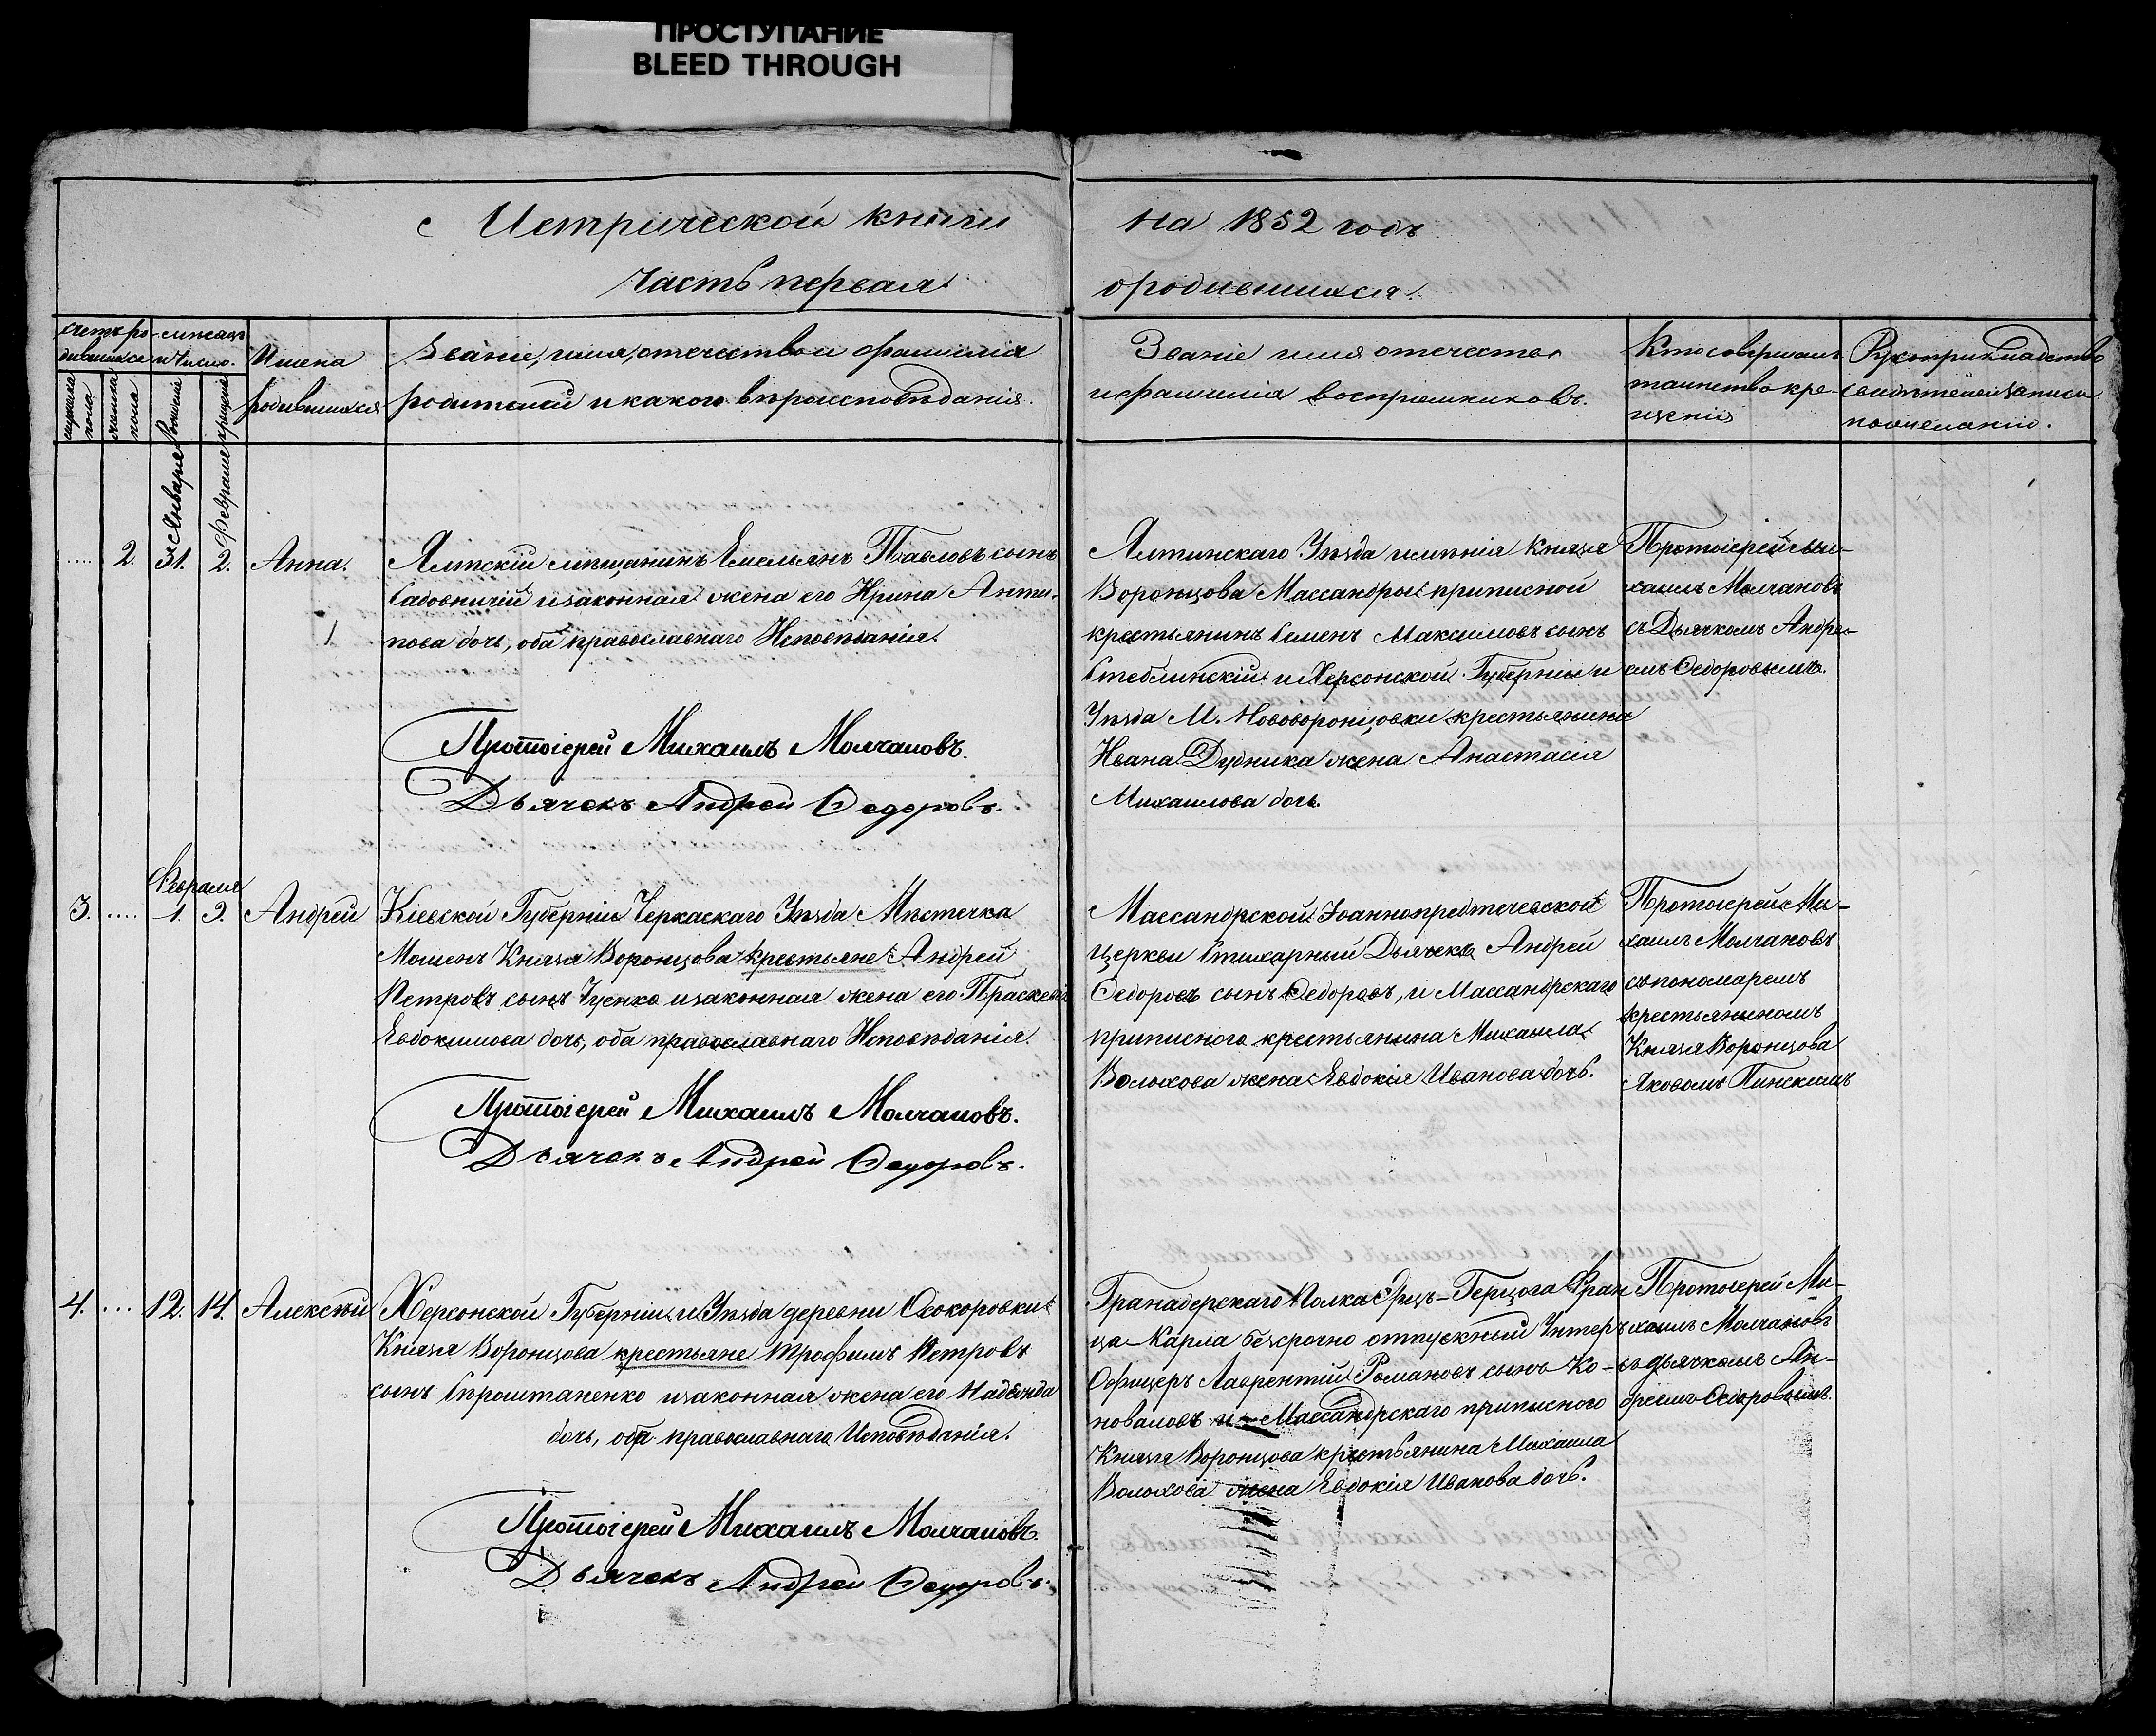 ПРОСТУПАНИЕ
BLEED THROUGH
Метрической книги на 1852 годъ
Часть первая о родившихся.
Счетъ ро-
дившихся
мужеска
пола
женска
пола
месяцъ
и число.
Рожденіе
крещеніе
Имена
родившихся
Званіе, имя, отчество и фамилія
родителей и какого вѣроисповѣданія.
Званіе имя отчество
и фамилія воспріемниковъ.
Кто совершалъ
таинство кре-
щенія
Рукоприкладство
свидѣтелей записи
по желанію.
Января
Февраля
2. 31. 2. Анна.
Ялтскій мѣщанинъ Емельянъ Павловъ сынъ
Садовничій и законная жена его Ирина Анти-
пова дочь, оба православнаго Исповѣданія.
Протоіерей Михаилъ Молчановъ.
Дьячекъ Андрей Федоровъ.
Ялтинскаго Уѣзда имѣнія Князя
Воронцова Массандры приписной
крестьянинъ Семенъ Максимовъ сынъ
Стеблинскій и Херсонской Губерніи и
Уѣзда М. Нововоронцовки крестьянина
Ивана Дудника жена Анастасія
Михаилова дочь.
Протоіерей Ми-
хаилъ Молчановъ
съ Дьячкомъ Андре-
емъ Ѳедоровымъ.
Февраля
3. 1. 9. Андрей
Кіевской Губерніи Черкаскаго Уѣзда Мѣстечка
Мошенъ Князя Воронцова крестьяне Андрей
Петровъ сынъ Гуенко и законная жена его Праскевія
Евдокимова дочь, оба православнаго Исповѣданія.
Протоіерей Михаилъ Молчановъ.
Дьячекъ Андрей Федоровъ.
Массандрской Іоаннопредтечевской
церкви Стихарный Дьячекъ Андрей
Ѳедоровъ сынъ Ѳедоровъ, и Массандрскаго
приписного крестьянина Михаила
Волохова жена Евдокія Иванова дочь.
Протоіерей Ми-
хаилъ Молчановъ
съ пономаремъ
крестьяниномъ
Князя Воронцова
Яковомъ Пинскимъ
4. 12. 14. Алексѣй
Херсонской Губерніи и Уѣзда деревни Осокоровки
Князя Воронцова крестьяне Трофимъ Петровъ
сынъ Сорошпаненко и законная жена его Надежда
дочь, оба православнаго Исповѣданія.
Протоіерей Михаилъ Молчановъ.
Дьячекъ Андрей Федоровъ.
Гранадерскаго Полка Эрцъ-Герцога Фран
ца-Карла безсрочно отпускный Унтеръ
Офицеръ Лаврентий Романовъ сынъ Ко-
новаловъ и Массандрскаго приписного
Князя Воронцова крестьянина Михаила
Волохова жена Евдокія Иванова дочь.
Протоіерей Ми-
хаилъ Молчановъ
съ дьячкомъ Ан-
дреемъ Ѳедоровымъ.